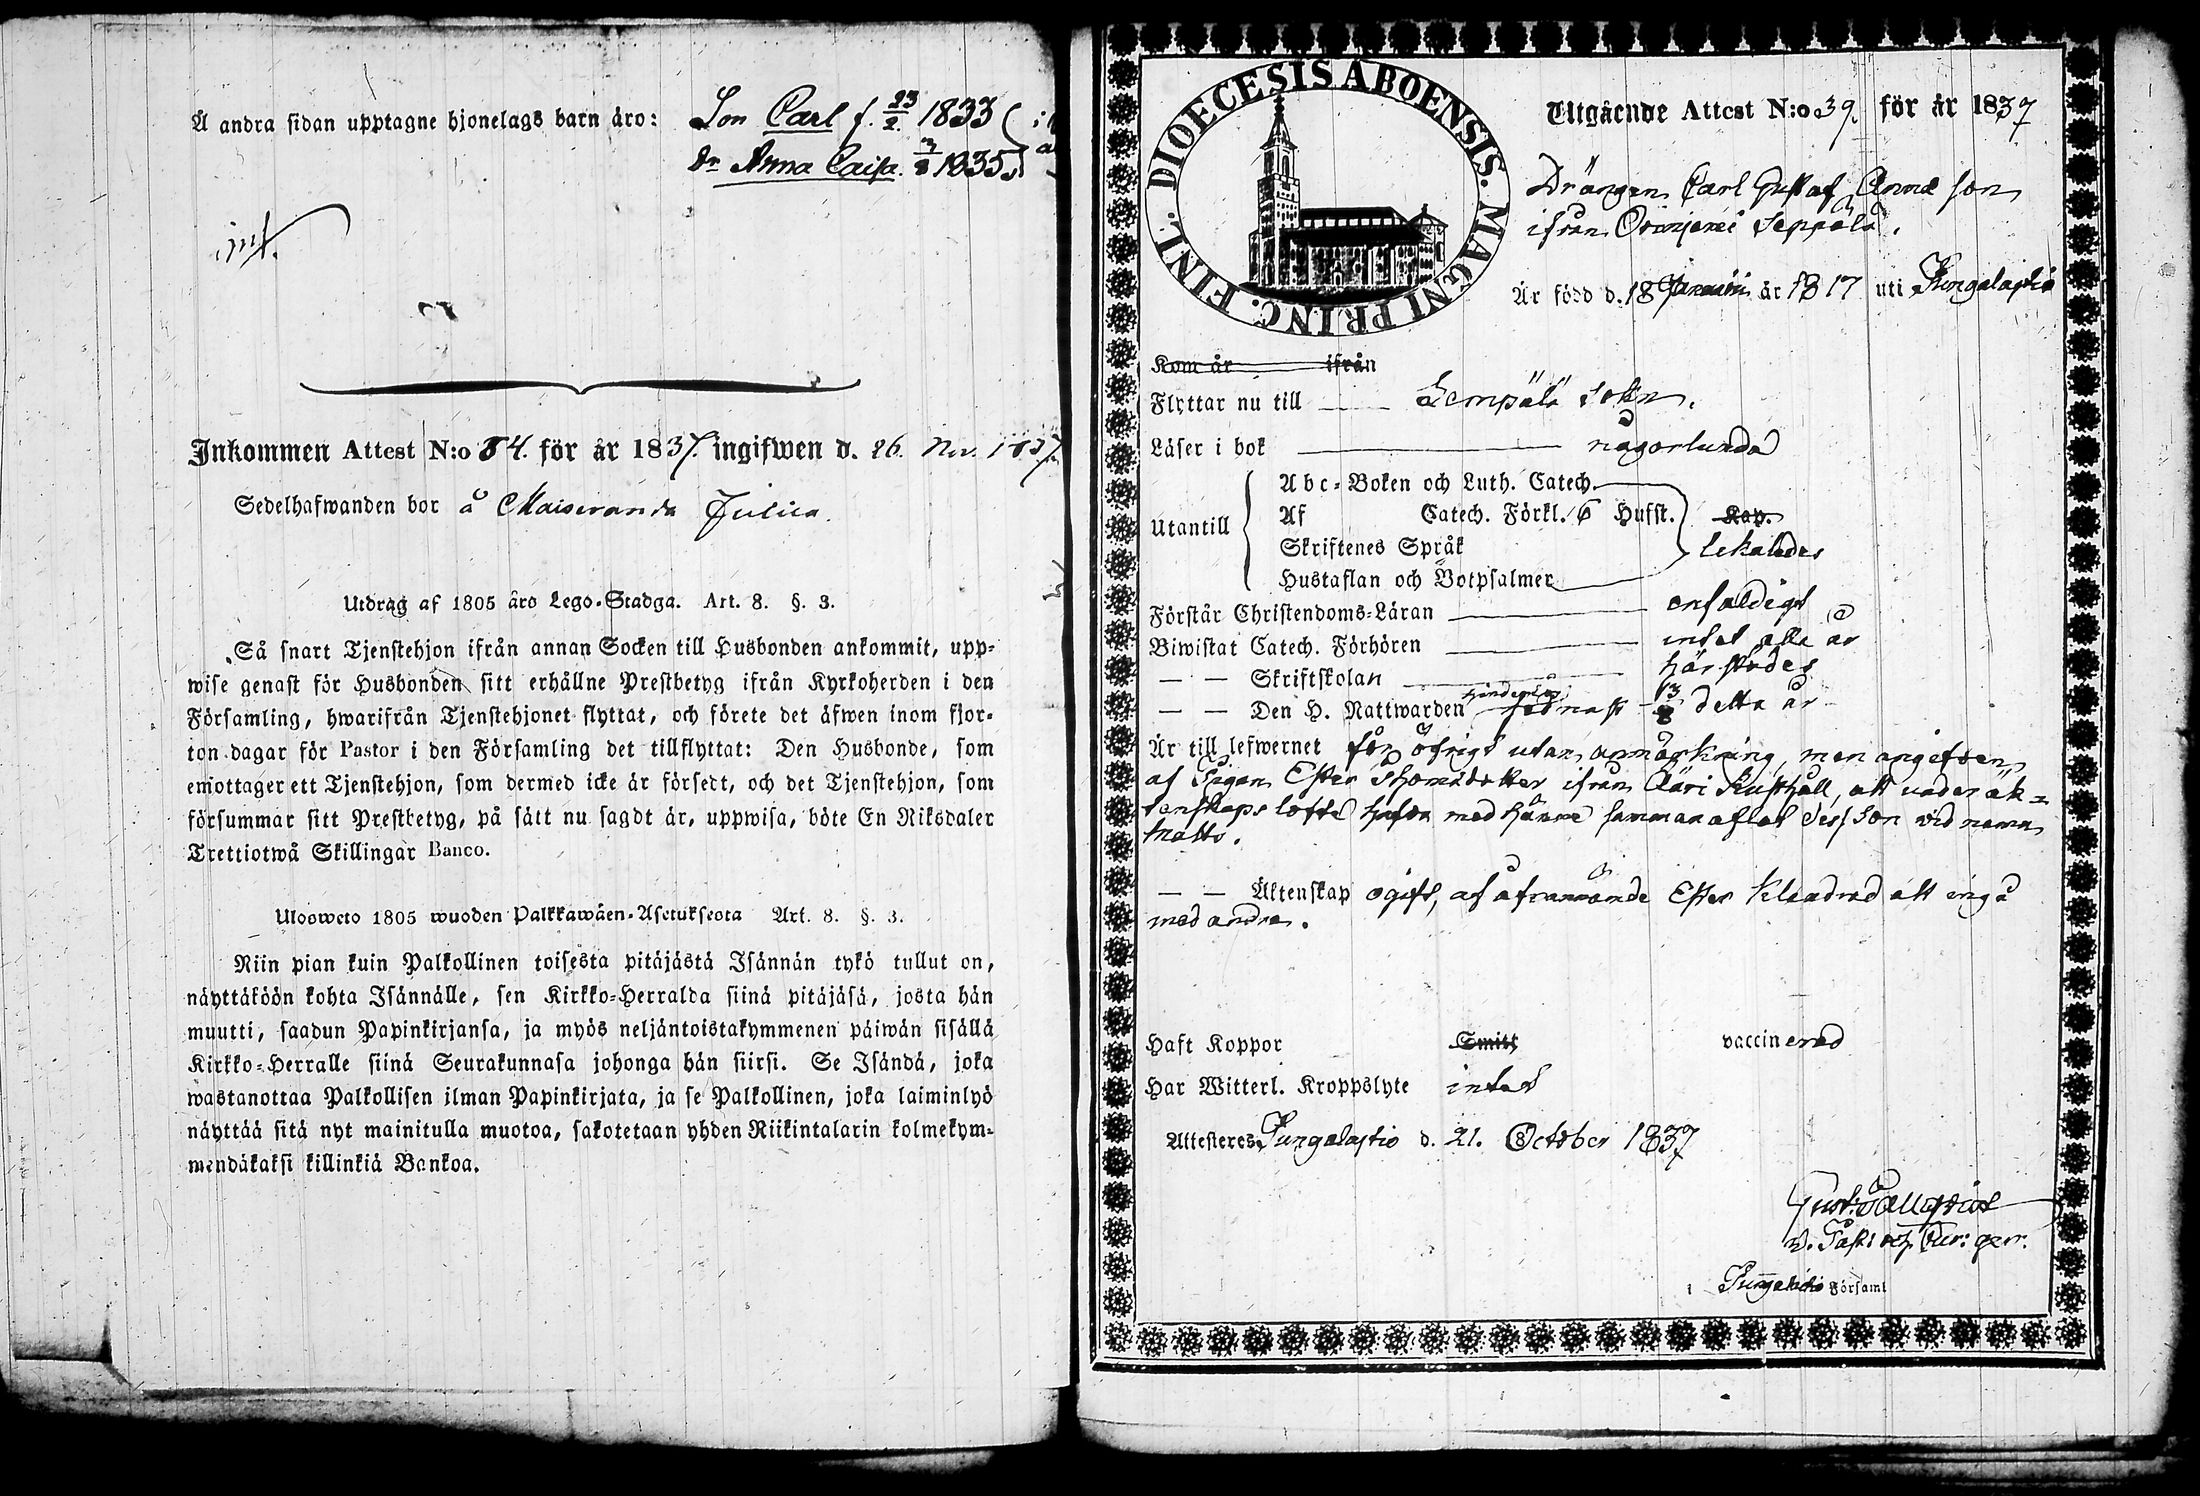 Å andra sidan upptagne hjonelags barn äro: Son Carl f. 23/2. 1833
Dr Anna Caisa. 1835
int.
Inkommen Attest N:o 84. för år 1837. ingifwen d. 26. Nov. 1837
Sedelhafwanden bor å Maisiranda Julila
Utdrag af 1805 års Lego-Stadga. Art. 8. §. 3.
Så snart Tjenstehjon ifrån annan Socken till Husbonden ankommit, upp-
wise genast för Husbonden sitt erhållne Prestbetyg ifrån Kyrkoherden i den
Församling, hwarifrån Tjenstehjonet flyttat, och förete det äfwen inom fjor-
ton dagar för Pastor i den Församling det tillflyttat: Den Husbonde, som
emottager ett Tjenstehjon, som dermed icke är försedt, och det Tjenstehjon, som
försummar sitt Prestbetyg, på sätt nu sagdt är, uppwisa, böte En Riksdaler
Trettiotwå Skillingar Banco.
Ulosweto 1805 wuoden Palkkawäen-Asetuksesta Art. 8. §. 3.
Niin pian kuin Palkollinen toisesta pitäjästä Isännän tykö tullut on,
näyttäköön kohta Isännälle, sen Kirkko-Herralda siinä pitäjäsä, josta hän
muutti, saadun Papinkirjansa, ja myös neljäntoistakymmenen päiwän sisällä
Kirkko-Herralle siinä Seurakunnasa johonga hän siirsi. Se Isändä, joka
wastanottaa Palkollisen ilman Papinkirjata, ja se Palkollinen, joka laiminlyö
näyttää sitä nyt mainitulla muotoa, sakotetaan yhden Riikintalarin kolmekym-
mendäkaksi killinkiä Bankoa.
DIOECESIS ABOENSIS. MAGNI PRINC. FINL.
Utgående Attest N:o 39. för år 1837
Drängen Carl Gustaf Annæ son
ifrån Seppälä.
Är född d. 18 Januarii år 1817 uti Kangalaptio
Kom år ifrån
Flyttar nu till Lempälä Sokn.
Läser i bok någorlunda
Utantill
Abc-Boken och Luth. Catech.
Af Catech. Förkl. 6 Hufst. Kap.
Skriftenes Språk lekaledes
Hustaflan och Botpsalmer
Förstår Christendoms-Läran enfaldigt
Biwistat Catech. Förhören intet alla år
— — Skriftskolan härstädes
— — Den H. Nattwarden sednast 13/8 detta år
Är till lefwernet för öfrigt utan anmärkning, men angifven
af Pigan Ester Thomædotter ifrån Ääri Rusthåll, att under äk-
tenskaps löfte hafva med henne sammanaflat dess Son vid namn
Matts.
— — Äktenskap ogift, af ofvannämnde Ester klandrad att ingå
med andra.
Haft Koppor Smitt vaccinerad
Har Witterl. Kroppslyte intet
Attesteres, Kungalaptio d. 21. October 1837
Gust:
v. Past: och Cur: ger.
i Församl